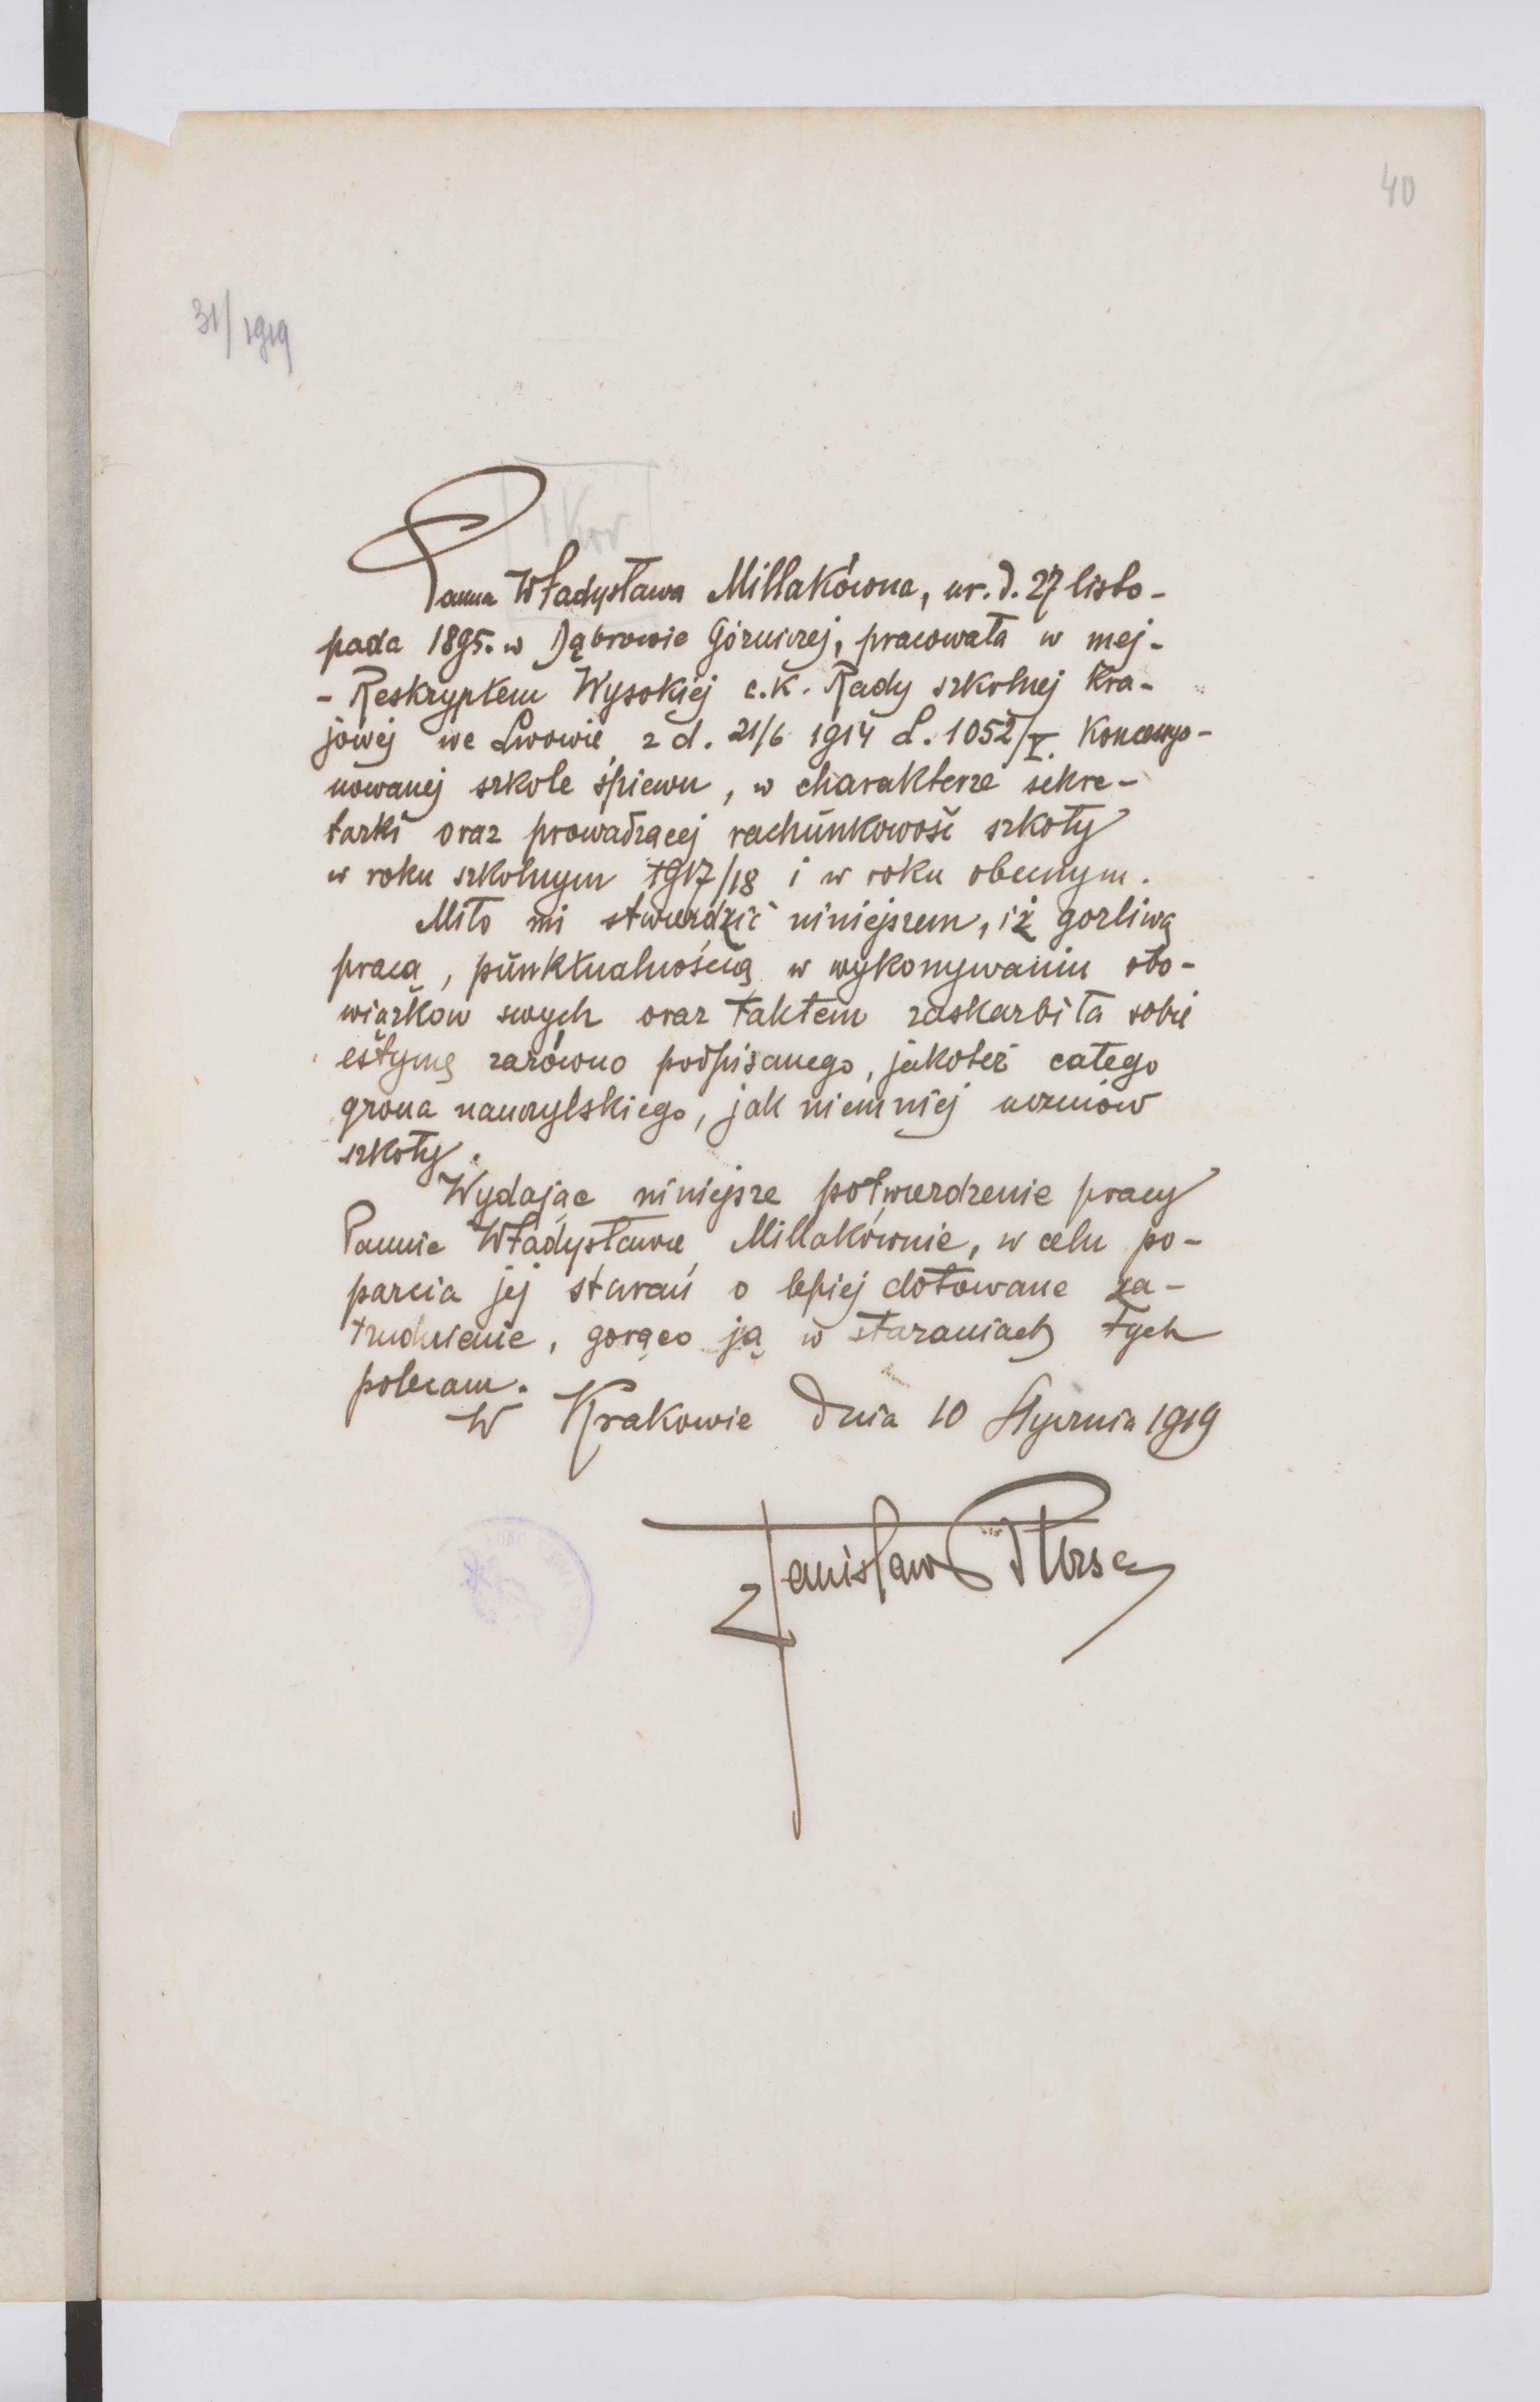 40
31/1919
Panna Władysława Millakówna, ur. d. 27 listo-
pada 1895. w Dąbrowie Górniczej, pracowała w mej -
- Reskryptem Wysokiej c.k. Rady szkolnej Kra-
jowej we Lwowie z d. 21/6 1914 L. 1052/V. Koncesyo-
nowanej szkole śpiewu, w charakterze sekre-
tarki oraz prowadzącej rachunkowość szkoły
w roku szkolnym 1917/18 i w roku obecnym.
Miło mi stwierdzić niniejszem, iż gorliwą
pracą, punktualnością w wykonywaniu obo-
wiązkow swych oraz taktem zaskarbiła sobie
estymę zarówno podpisanego, jakoteż całego
grona nauczylskiego, jak niemniej uczniów
szkoły.
Wydając niniejsze potwierdzenie pracy
Pannie Władysławie Millakównie, w celu po-
parcia jej starań o lepiej dotowane za-
trudnienie, gorąco ją w staraniach tych
polecam.
W Krakowie dnia 10 Stycznia 1919
Stanisław Bursa